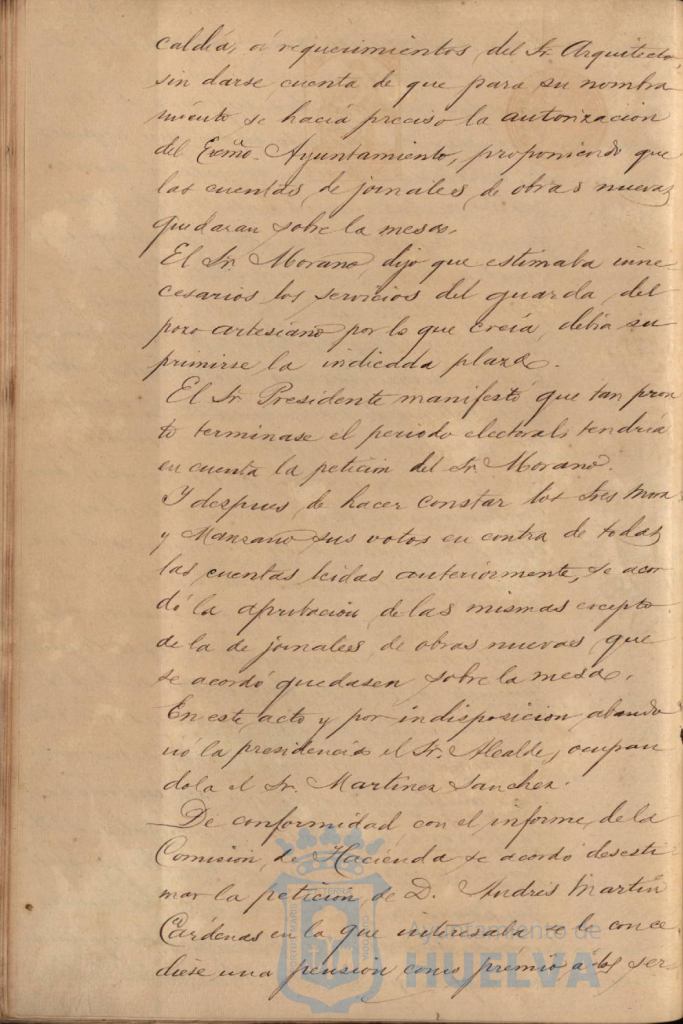 caldía, á requerimientos del Sr. Arquitecto,
sin darse cuenta de que para su nombra
miento se hacia preciso la autorizacion
del Excmo. Ayuntamiento, proponiendo que
las cuentas de jornales de obras nuevas
quedaran sobre la mesa.
El Sr. Morano, dijo que estimaba inne
cesarios los servicios del guarda del
pozo artesiano por lo que creía, debia su
primirse la indicada plaza.
El Sr. Presidente manifestó que tan pron
to terminase el periodo electoral tendria
en cuenta la peticion del Sr. Morano.
Y despues de hacer constar los Sres Mora
y Manzano sus votos en contra de todas
las cuentas leidas anteriormente, se acor
dó la aprobacion de las mismas excepto
de la de jornales de obras nuevas que
se acordó quedasen sobre la mesa.
En este acto y por indisposicion abando
nó la presidencia el Sr. Alcalde, ocupan
dola el Sr. Martinez Sanchez.
De conformidad con el informe de la
Comisión de Hacienda se acordó desesti
mar la petición de D. Andrés Martín
Cárdenas en la que interesaba se le conce
diese una pensión como premio a los ser
Ayuntamiento de
HUELVA